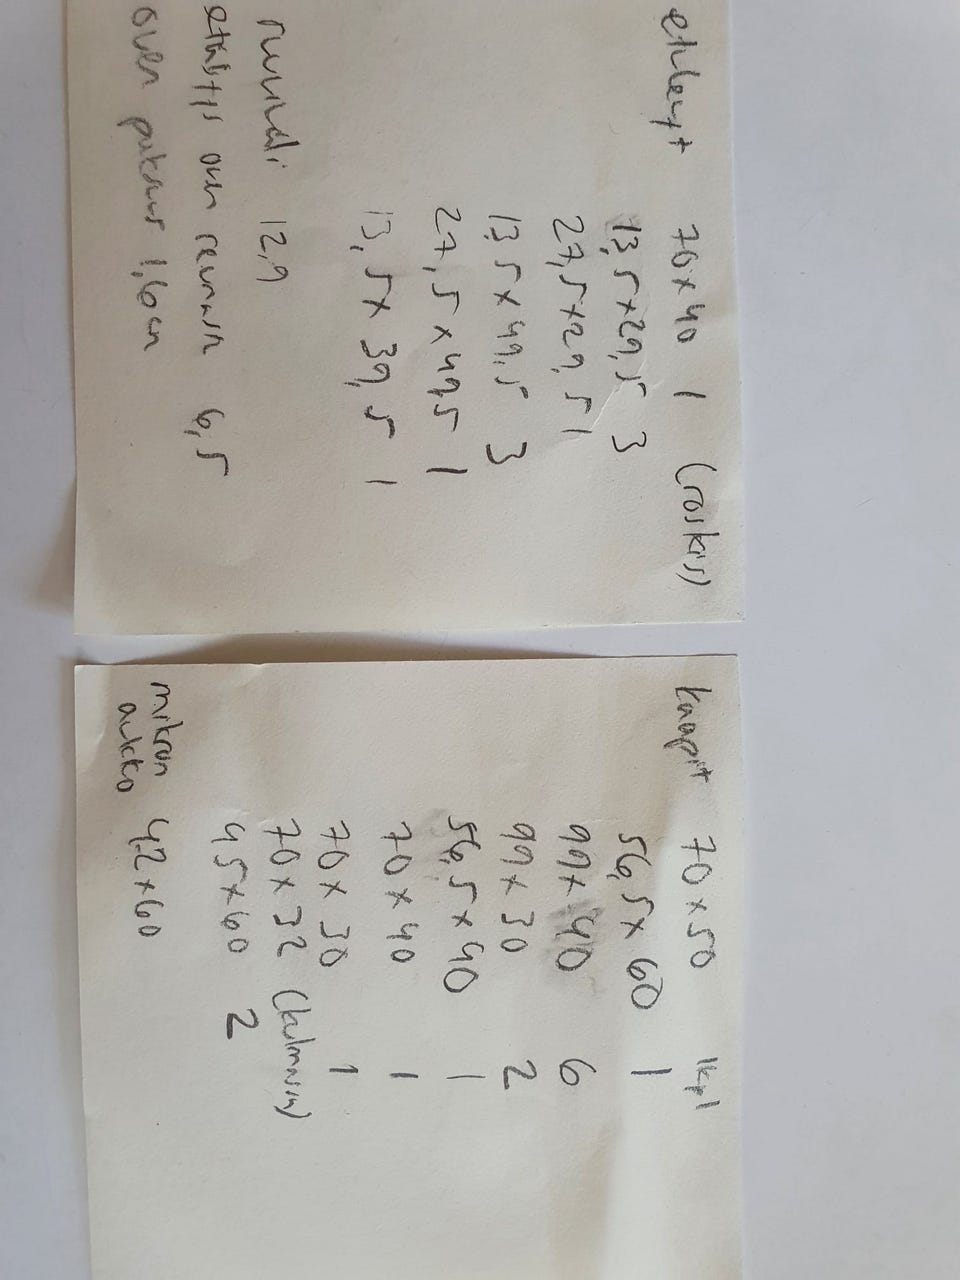 etulevyt 70x40 1 (roskis)
13,5x29,5 3
27,5x29,5 1
13,5x49,5 3
27,5x49,5 1
13,5x39,5 1
ruuvinväli 12,9
etäisyys oven reunasta 6,5
oven paksuus 1,6cm
kaapit 70x50 1kpl
56,5x60 1
99x40 6
99x30 2
56,5x40 1
70x40 1
70x30 1
70x32 (kulmassa)
45x60 2
mikron
aukko 42x60